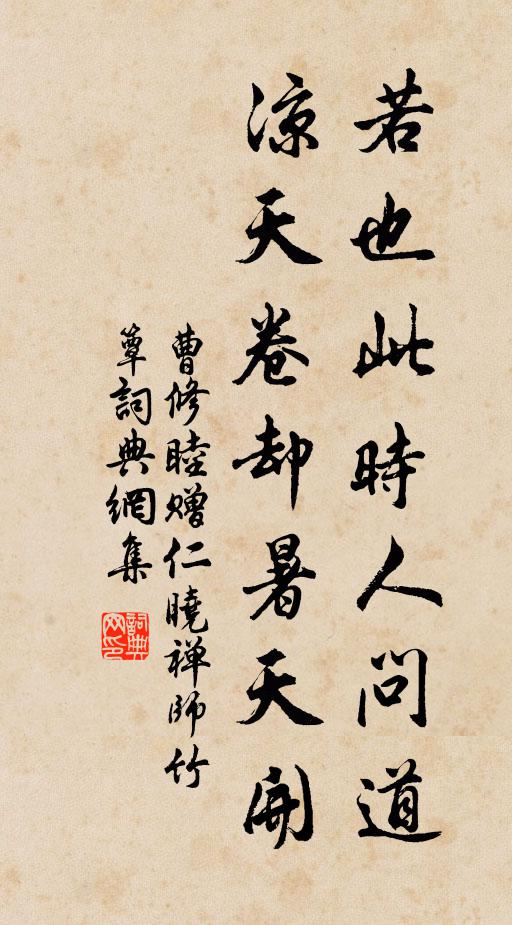 若也此時人問道
涼天卷却暑天開
曹修睦贈仁曉禪師竹
簟詞典網集
詞典
网印